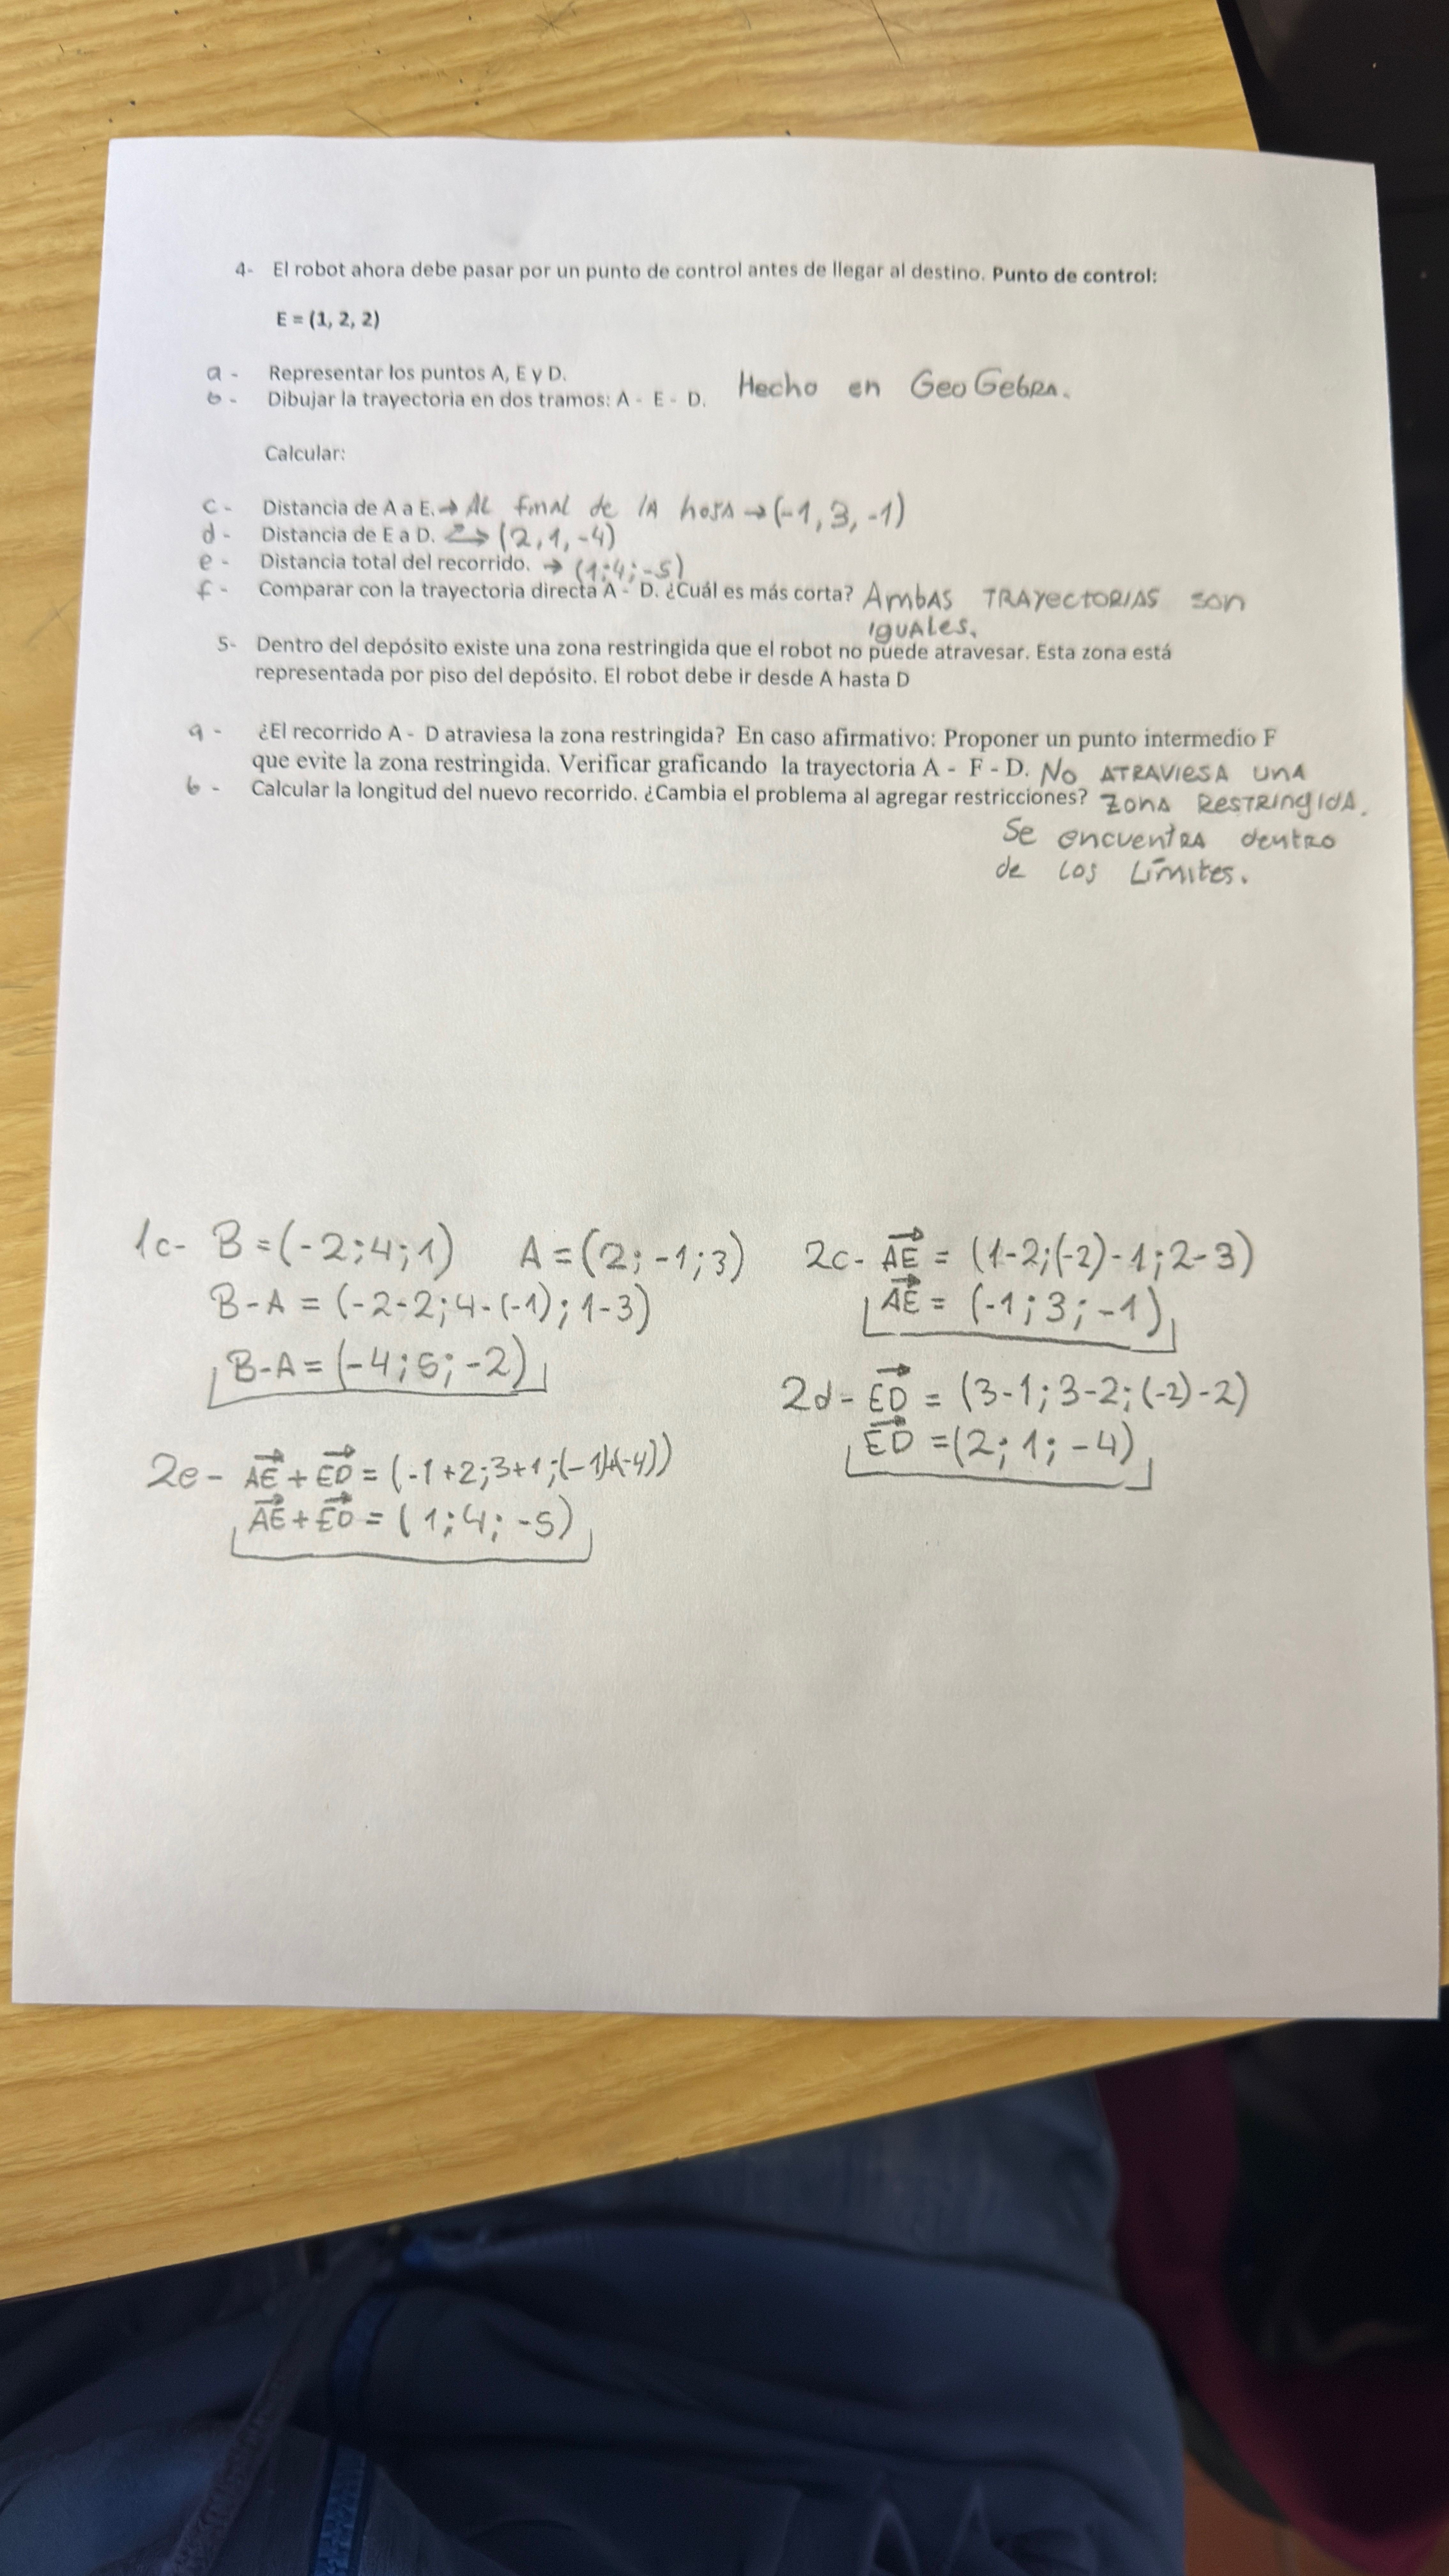 4- El robot ahora debe pasar por un punto de control antes de llegar al destino. Punto de control:
E = (1, 2, 2)
a - Representar los puntos A, E y D.
b - Dibujar la trayectoria en dos tramos: A - E - D. Hecho en GeoGebra.
Calcular:
c - Distancia de A a E. → Al final de la hoja → (-1, 3, -1)
d - Distancia de E a D. → (2, 1, -4)
e - Distancia total del recorrido. → (1; 4; -5)
f - Comparar con la trayectoria directa A - D. ¿Cuál es más corta? Ambas trayectorias son
iguales.
5- Dentro del depósito existe una zona restringida que el robot no puede atravesar. Esta zona está
representada por piso del depósito. El robot debe ir desde A hasta D
a - ¿El recorrido A - D atraviesa la zona restringida? En caso afirmativo: Proponer un punto intermedio F
que evite la zona restringida. Verificar graficando la trayectoria A - F - D. No atraviesa una
b - Calcular la longitud del nuevo recorrido. ¿Cambia el problema al agregar restricciones? zona restringida.
Se encuentra dentro
de los límites.
1c- B = (-2; 4; 1) A = (2; -1; 3)
B-A = (-2-2; 4-(-1); 1-3)
B-A = (-4; 5; -2)
2c- AE = (1-2; (-2)-1; 2-3)
AE = (-1; 3; -1)
2d- ED = (3-1; 3-2; (-2)-2)
ED = (2; 1; -4)
2e- AE + ED = (-1+2; 3+1; (-1)+(-4))
AE + ED = (1; 4; -5)